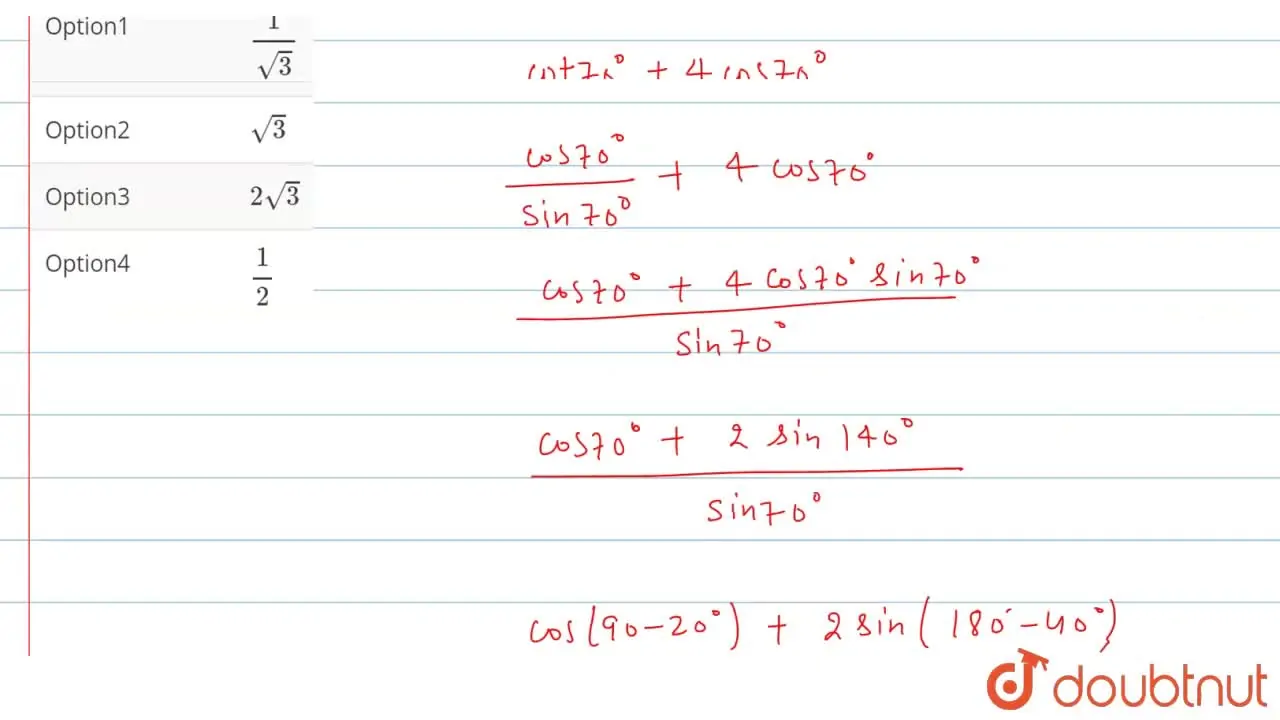 Option1 1/√3
Option2 √3
Option3 2√3
Option4 1/2
cot70° + 4cos70°
cos70°/sin70° + 4 cos70°
cos70° + 4 cos70° sin70°
sin70°
cos70° + 2 sin 140°
sin70°
cos(90-20°) + 2 sin(180°-40°)
doubtnut